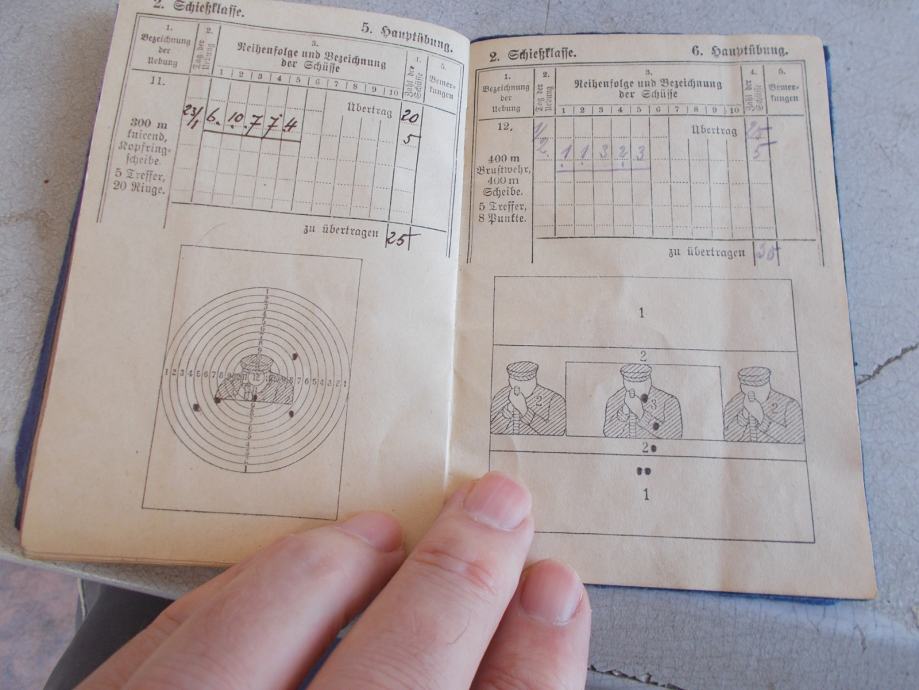 2. Schießklasse. 5. Hauptübung.
1. 2. 3. 4. 5.
Bezeichnung der Uebung
Tag der Uebung
Reihenfolge und Bezeichnung der Schüsse
Zahl der Schüsse
Bemerkungen
1 2 3 4 5 6 7 8 9 10
11.
Übertrag 20
23/1 6. 10. 7 7 4 5
300 m
knieend,
Kopfring-
scheibe.
5 Treffer,
20 Ringe.
zu übertragen 25
1 2 3 4 5 6 7 8 9 10 11 12
2. Schießklasse. 6. Hauptübung.
1. 2. 3. 4. 5.
Bezeichnung der Uebung
Tag der Uebung
Reihenfolge und Bezeichnung der Schüsse
Zahl der Schüsse
Bemerkungen
1 2 3 4 5 6 7 8 9 10
12.
Übertrag 25
1/2. 1 1 3 2 3 5
400 m
Brustwehr,
400 m
Scheibe.
5 Treffer,
8 Punkte.
zu übertragen 30
1
2
2 3 2
2
1